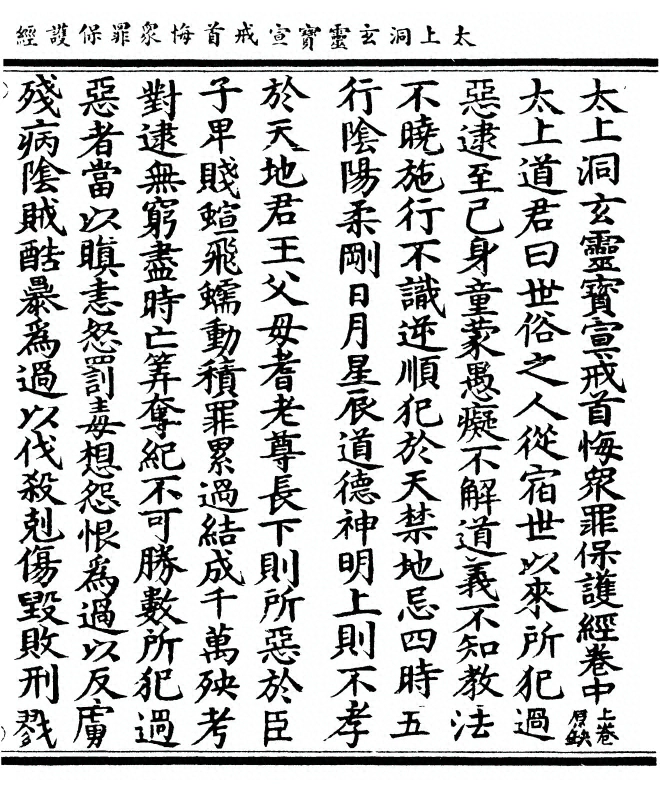 太上洞玄靈寶宣戒首悔衆罪保護經
太上洞玄靈寶宣戒首悔衆罪保護經卷中上卷原缺
太上道君曰世俗之人從宿世以來所犯過
惡逮至己身童蒙愚癡不解道義不知教法
不曉施行不識逆順犯於天禁地忌四時五
行陰陽柔剛日月星辰道德神明上則不孝
於天地君王父母耆老尊長下則所惡於臣
子卑賤蝖飛蠕動積罪累過結成千萬殃考
對逮無窮盡時亡筭奪紀不可勝數所犯過
惡者當以瞋恚怒罰毒想怨恨爲過以反虜
殘病陰賊酷暴爲過以伐殺剋傷毀敗刑戮